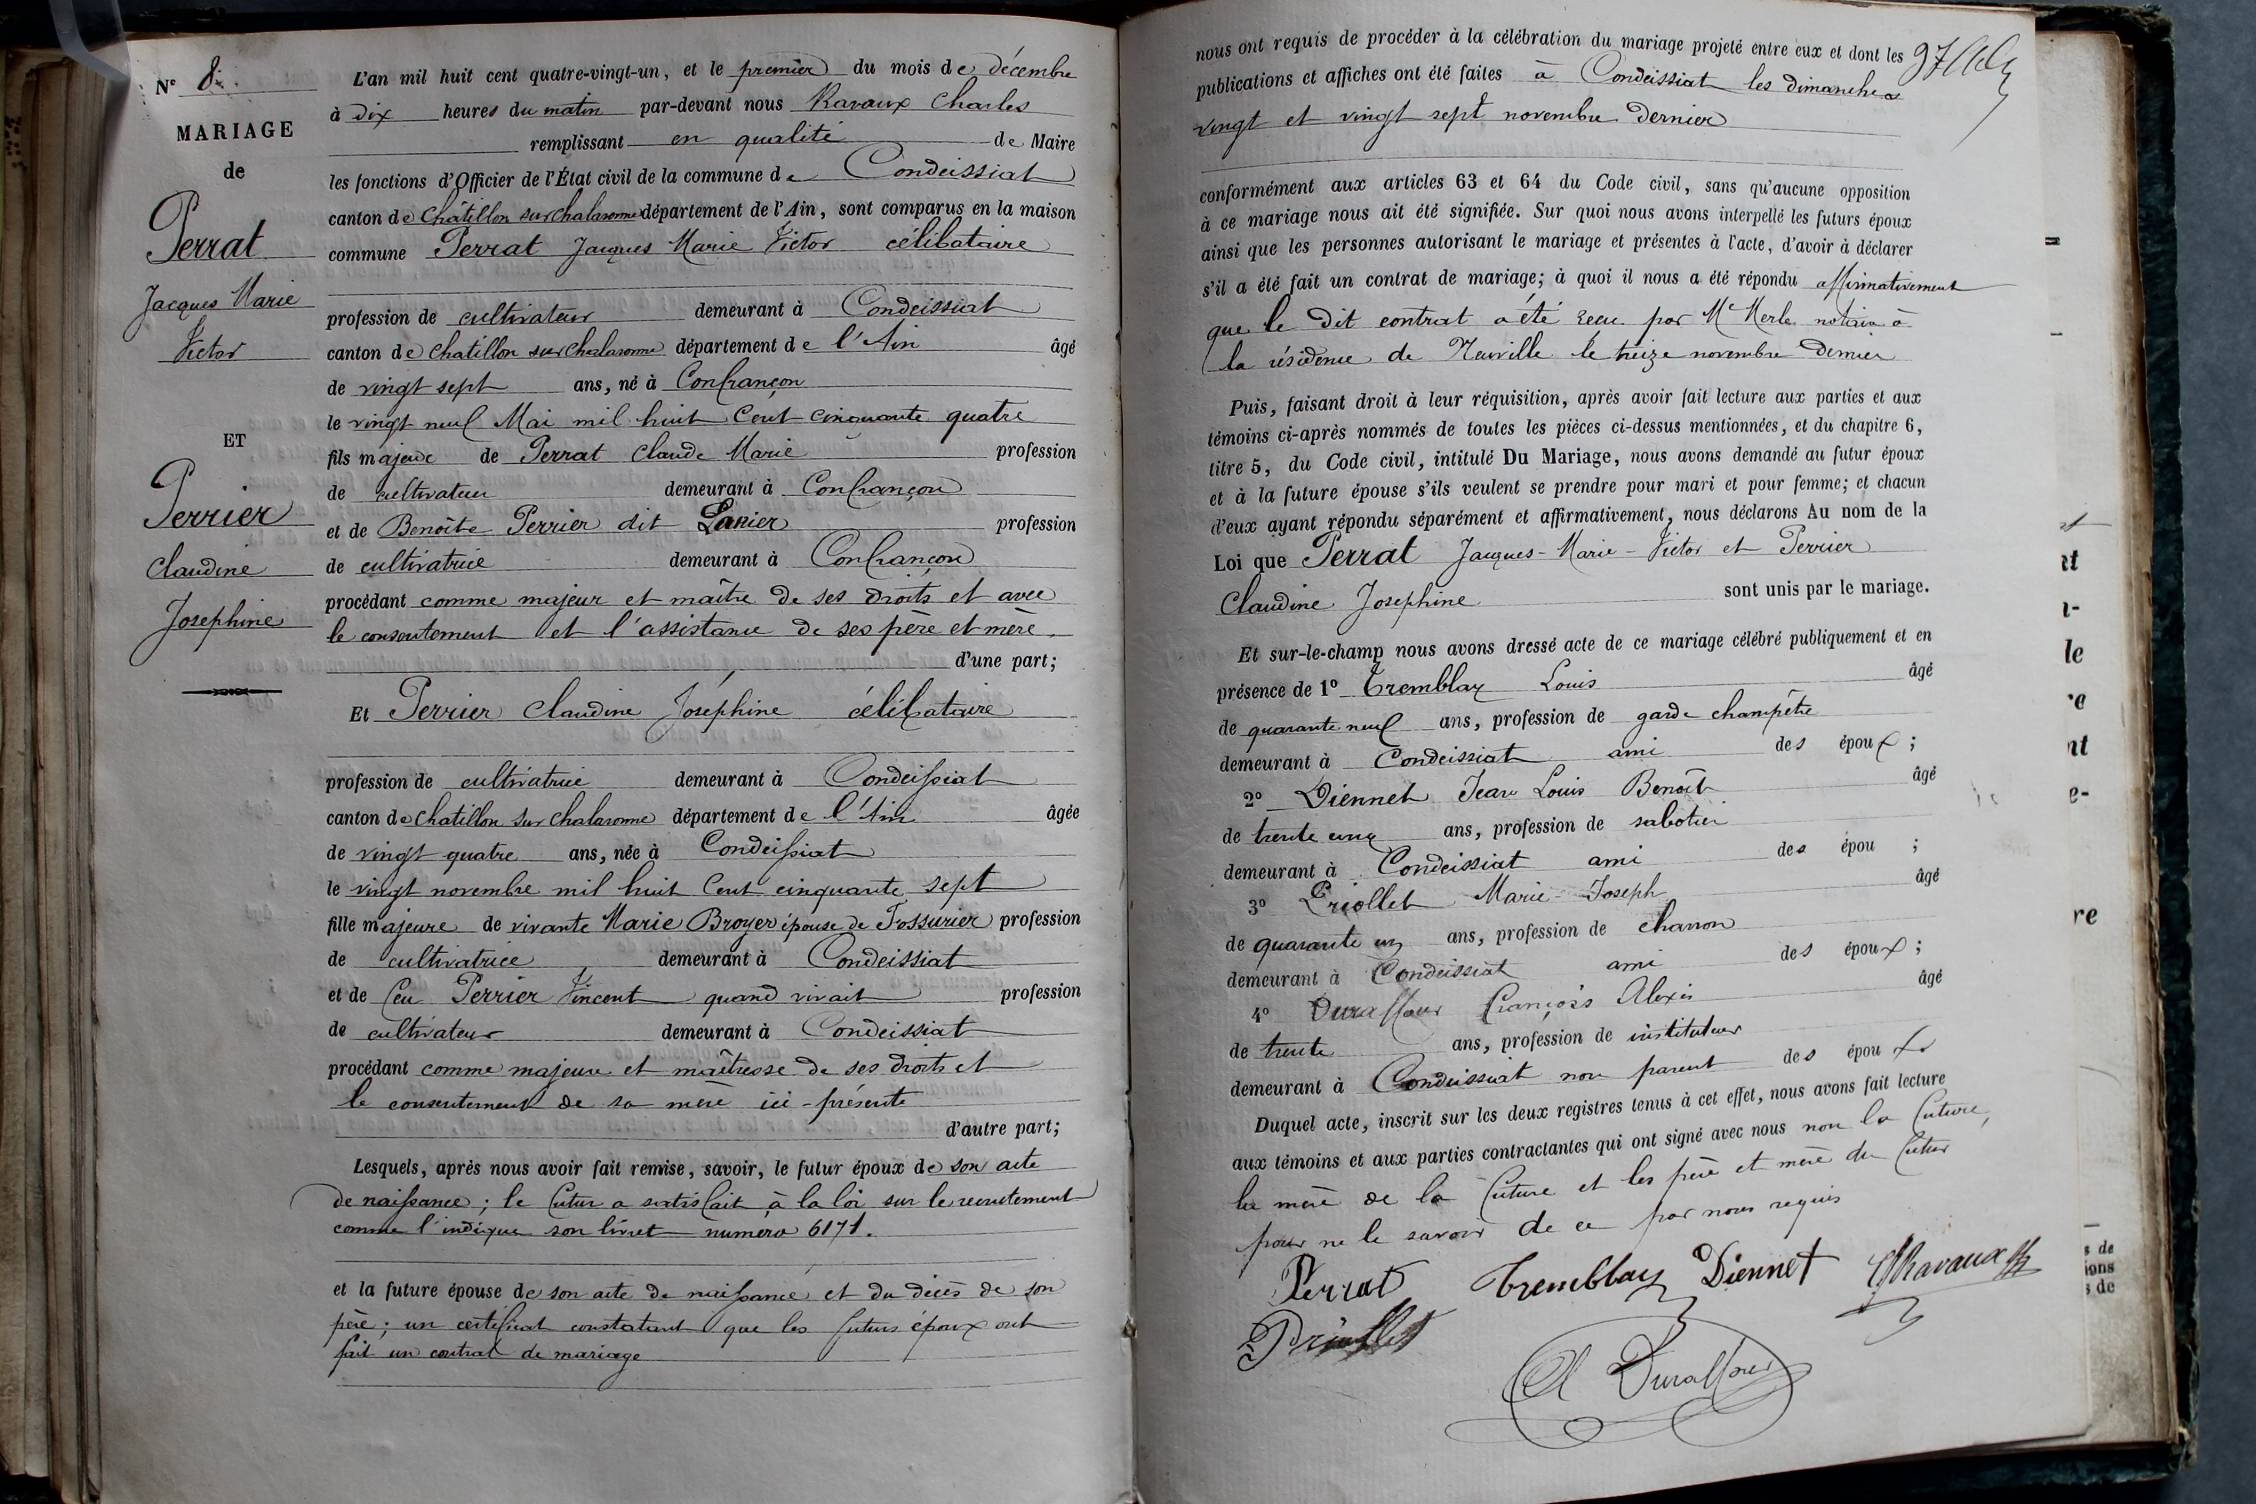 N° 8.
MARIAGE
de
Perrat
Jacques Marie
Victor
ET
Perrier
Claudine
Josephine
L'an mil huit cent quatre-vingt-un, et le premier du mois de décembre
à dix heures du matin par-devant nous Ravaux Charles
remplissant en qualité de Maire
les fonctions d'Officier de l'État civil de la commune de Condeissiat
canton de Châtillon sur Chalaronne département de l'Ain, sont comparus en la maison
commune Perrat Jacques Marie Victor célibataire
profession de cultivateur demeurant à Condeissiat
canton de Chatillon sur Chalaronne département de l'Ain âgé
de vingt sept ans, né à Confrançon
le vingt neuf Mai mil huit Cent cinquante quatre
fils majeur de Perrat Claude Marie profession
de cultivateur demeurant à Confrançon
et de Benoîte Perrier dit Lanier profession
de cultivatrice demeurant à Confrançon
procédant comme majeur et maître de ses droits et avec
le consentement et l'assistance de ses père et mère.
d'une part;
Et Perrier Claudine Joséphine célibataire
profession de cultivatrice demeurant à Condeissiat
canton de Chatillon sur Chalaronne département de l'Ain âgée
de vingt quatre ans, née à Condeissiat
le vingt novembre mil huit Cent cinquante sept
fille majeure de vivante Marie Broyer épouse de Fossurier profession
de cultivatrice demeurant à Condeissiat
et de feu Perrier Vincent quand vivait profession
de cultivateur demeurant à Condeissiat
procédant comme majeure et maîtresse de ses droits et
le consentement de sa mère ici-présente
d'autre part;
Lesquels, après nous avoir fait remise, savoir, le futur époux de son acte
de naissance; le futur a satisfait à la loi sur le recrutement
comme l'indique son livret numéro 6171.
et la future épouse de son acte de naissance et du décès de son
père; un certificat constatant que les futurs époux ont
fait un contrat de mariage
nous ont requis de procéder à la célébration du mariage projeté entre eux et dont les
publications et affiches ont été faites à Condeissiat les dimanches
vingt et vingt sept novembre dernier
conformément aux articles 63 et 64 du Code civil, sans qu'aucune opposition
à ce mariage nous ait été signifiée. Sur quoi nous avons interpellé les futurs époux
ainsi que les personnes autorisant le mariage et présentes à l'acte, d'avoir à déclarer
s'il a été fait un contrat de mariage; à quoi il nous a été répondu affirmativement
que le dit contrat a été recu par Me Merle notaire à
la résidence de Neuville le treize novembre dernier
Puis, faisant droit à leur réquisition, après avoir fait lecture aux parties et aux
témoins ci-après nommés de toutes les pièces ci-dessus mentionnées, et du chapitre 6,
titre 5, du Code civil, intitulé Du Mariage, nous avons demandé au futur époux
et à la future épouse s'ils veulent se prendre pour mari et pour femme; et chacun
d'eux ayant répondu séparément et affirmativement, nous déclarons Au nom de la
Loi que Perrat Jacques-Marie-Victor et Perrier
Claudine Josephine sont unis par le mariage.
Et sur-le-champ nous avons dressé acte de ce mariage célébré publiquement et en
présence de 1° Tremblay Louis âgé
de quarante neuf ans, profession de garde champêtre
demeurant à Condeissiat ami des époux;
2° Diennet Jean Louis Benoît âgé
de trente cinq ans, profession de sabotier
demeurant à Condeissiat ami des épou ;
3° Priollet Marie-Joseph âgé
de quarante un ans, profession de charron
demeurant à Condeissiat ami des époux;
4° Duraffour François Alexis âgé
de trente ans, profession de instituteur
demeurant à Condeissiat non parent des époux
Duquel acte, inscrit sur les deux registres tenus à cet effet, nous avons fait lecture
aux témoins et aux parties contractantes qui ont signé avec nous non la future,
la mère de la future et les père et mère du futur
pour ne le savoir de ce par nous requis
Perrat Tremblay Diennet Ravaux
Priollet
A Duraffour